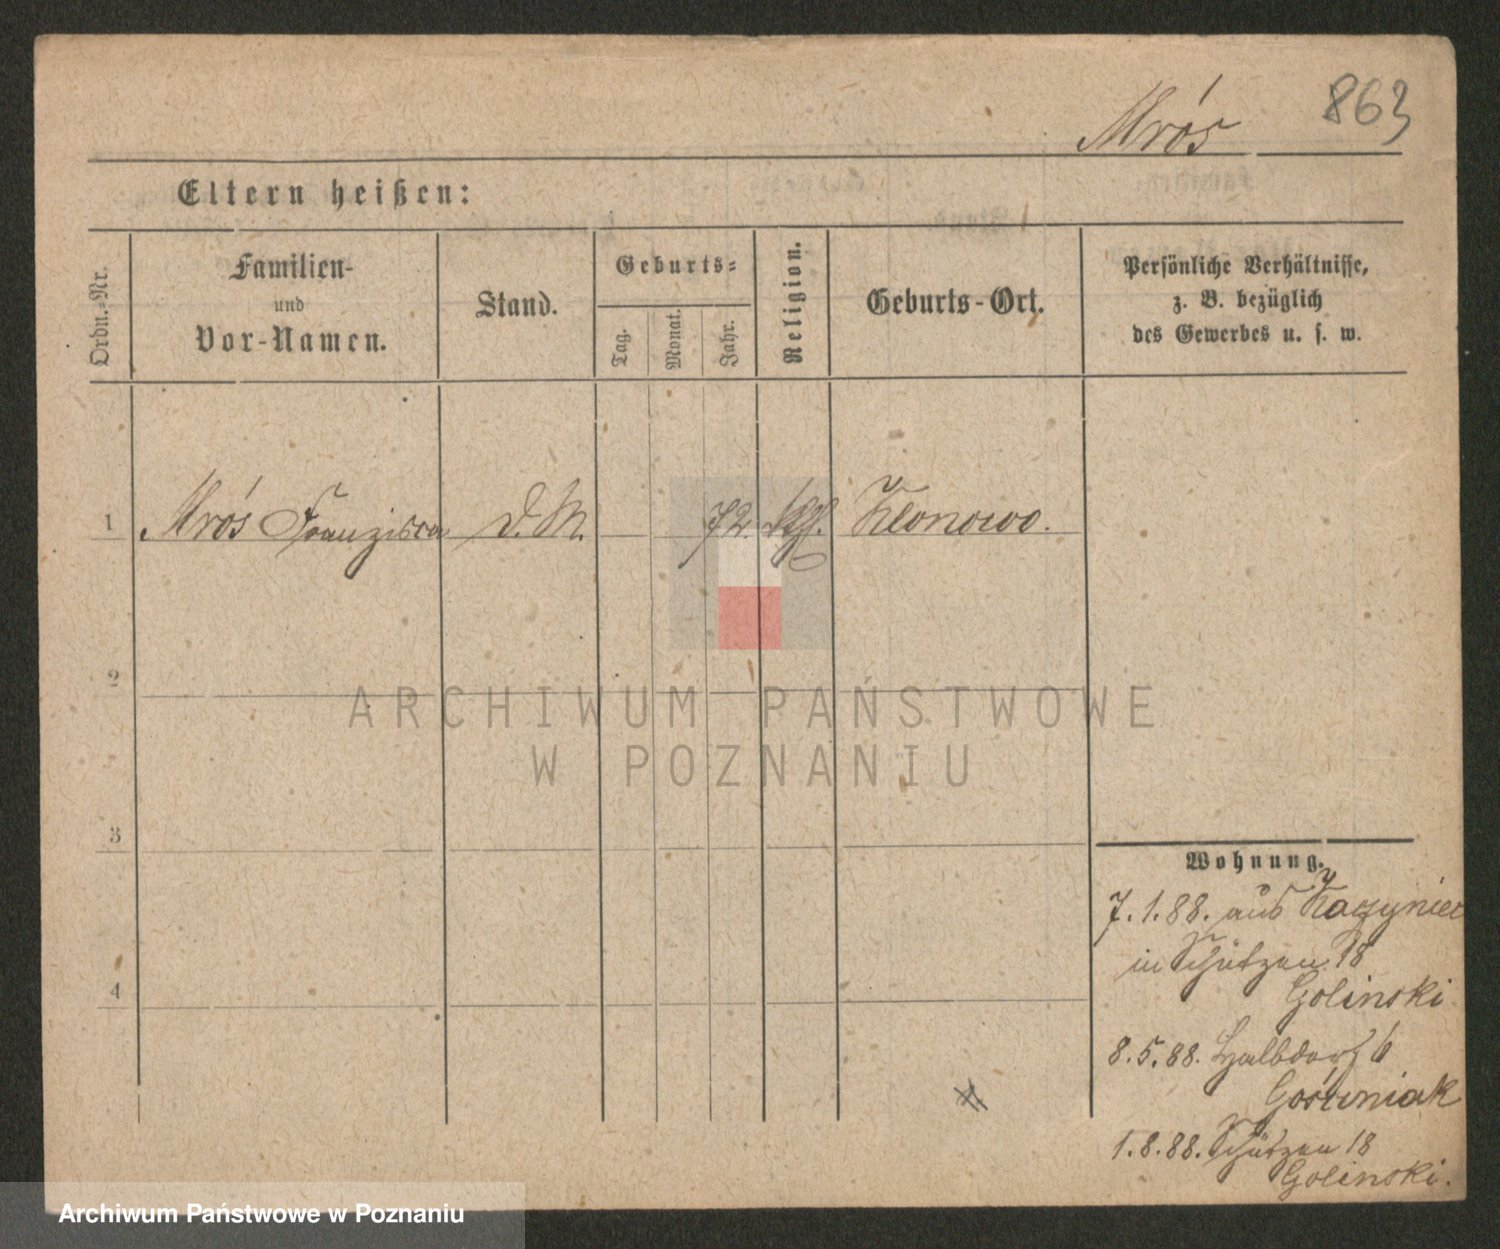 863
Mrós
Eltern heißen:
Ordn.-Nr.
Familien-
und
Vor-Namen.
Stand.
Geburts-
Tag.
Monat.
Jahr.
Religion.
Geburts-Ort.
Persönliche Verhältnisse,
z. B. bezüglich
des Gewerbes u. s. w.
1 Mrós Franzisca D. M. 72. kth. Klonowo.
2
3
4
ARCHIWUM PAŃSTWOWE
W POZNANIU
Wohnung.
7.1.88. aus
in Schützen 18
Golinski
8.5.88. Halbdorf 6
Gośwniak
1.8.88. Schützen 18
Golinski.
Archiwum Państwowe w Poznaniu